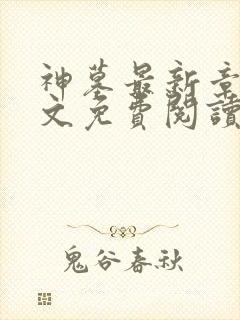 神墓最新章
文免費閱讀
鬼谷春秋